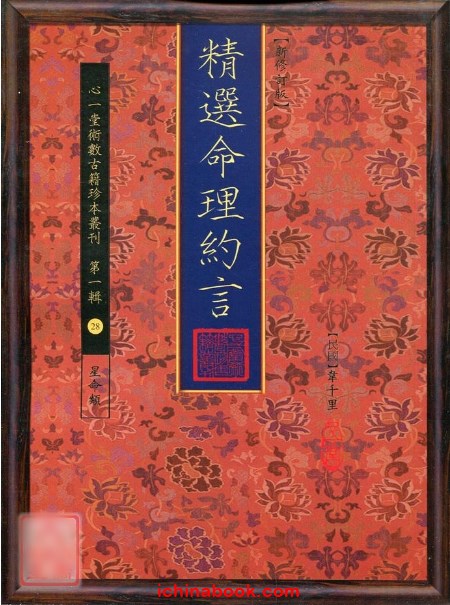 【新修訂版】
精選命理約言
【民國】韋千里
心一堂術數古籍珍本叢刊 第一輯 28 星命類
ichinabook.com